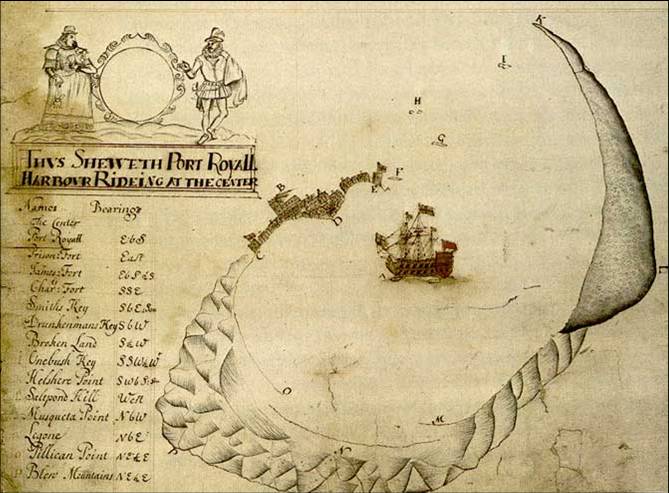 Thus Sheweth Port Royall
Harbour Rideing at the center
Names Bearings
The Center
Port Royall E b S
Prison: Fort East
James: Fort
Char: Fort S S E
Smiths Key
Drunkenmans Key S b W
Broken Land
Onebush Key
Helshire Point
Saltpond Hill West
Musqueta Point N b W
Legone N b E
Pillican Point
Blew Mountains
K
I
H
G
F
E
B
D
C
O
M
N